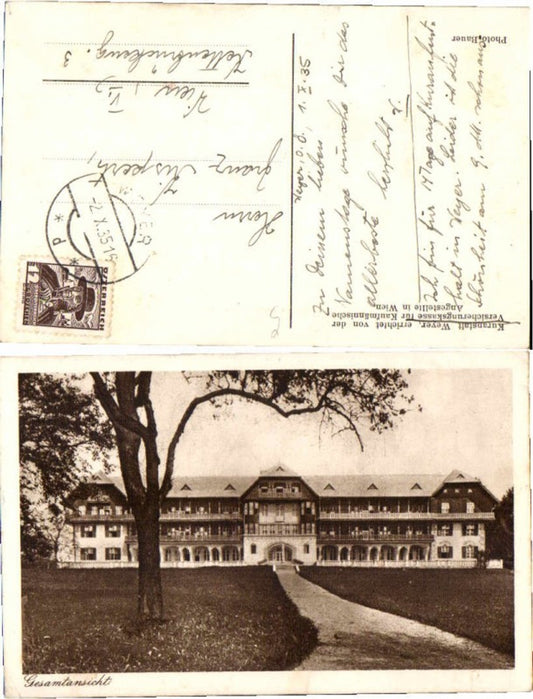 Kuranstalt Weyer, errichtet von der
Versicherungskasse für Kaufmännische
Angestellte in Wien.
Weyer, O.Ö., 1.X.35
Zu Deinem lieben
Namenstage wünsche Dir das
allerbeste
Ich bin für 14 Tage auf Kuraufent-
halt in Weyer. Leider ist die
Schönheit am 9. ds. schon aus
Photo-Bauer
ÖSTERREICH
WEYER
-2.X.35
P
Herrn
Franz
Wien, VI.,
Kettenbrückeng. 3
Gesamtansicht